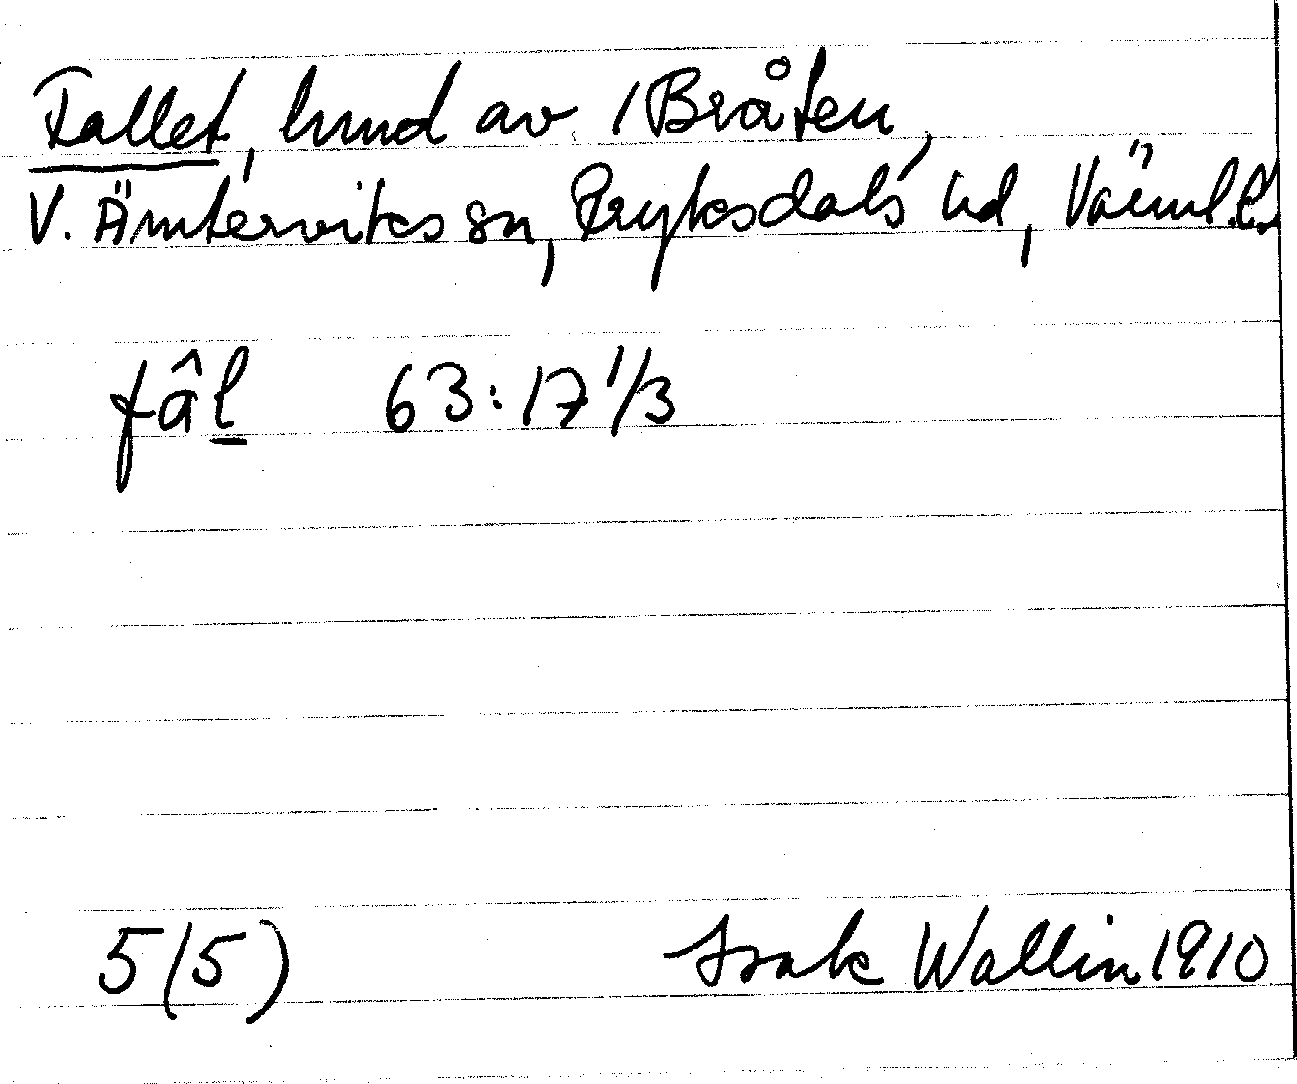 Fallet, hmd av 1 Bråten,
V. Ämterviks sn, Fryksdals hd, Värml. l.
fâl 63:17 1/3
5(5) Isak Wallin 1910